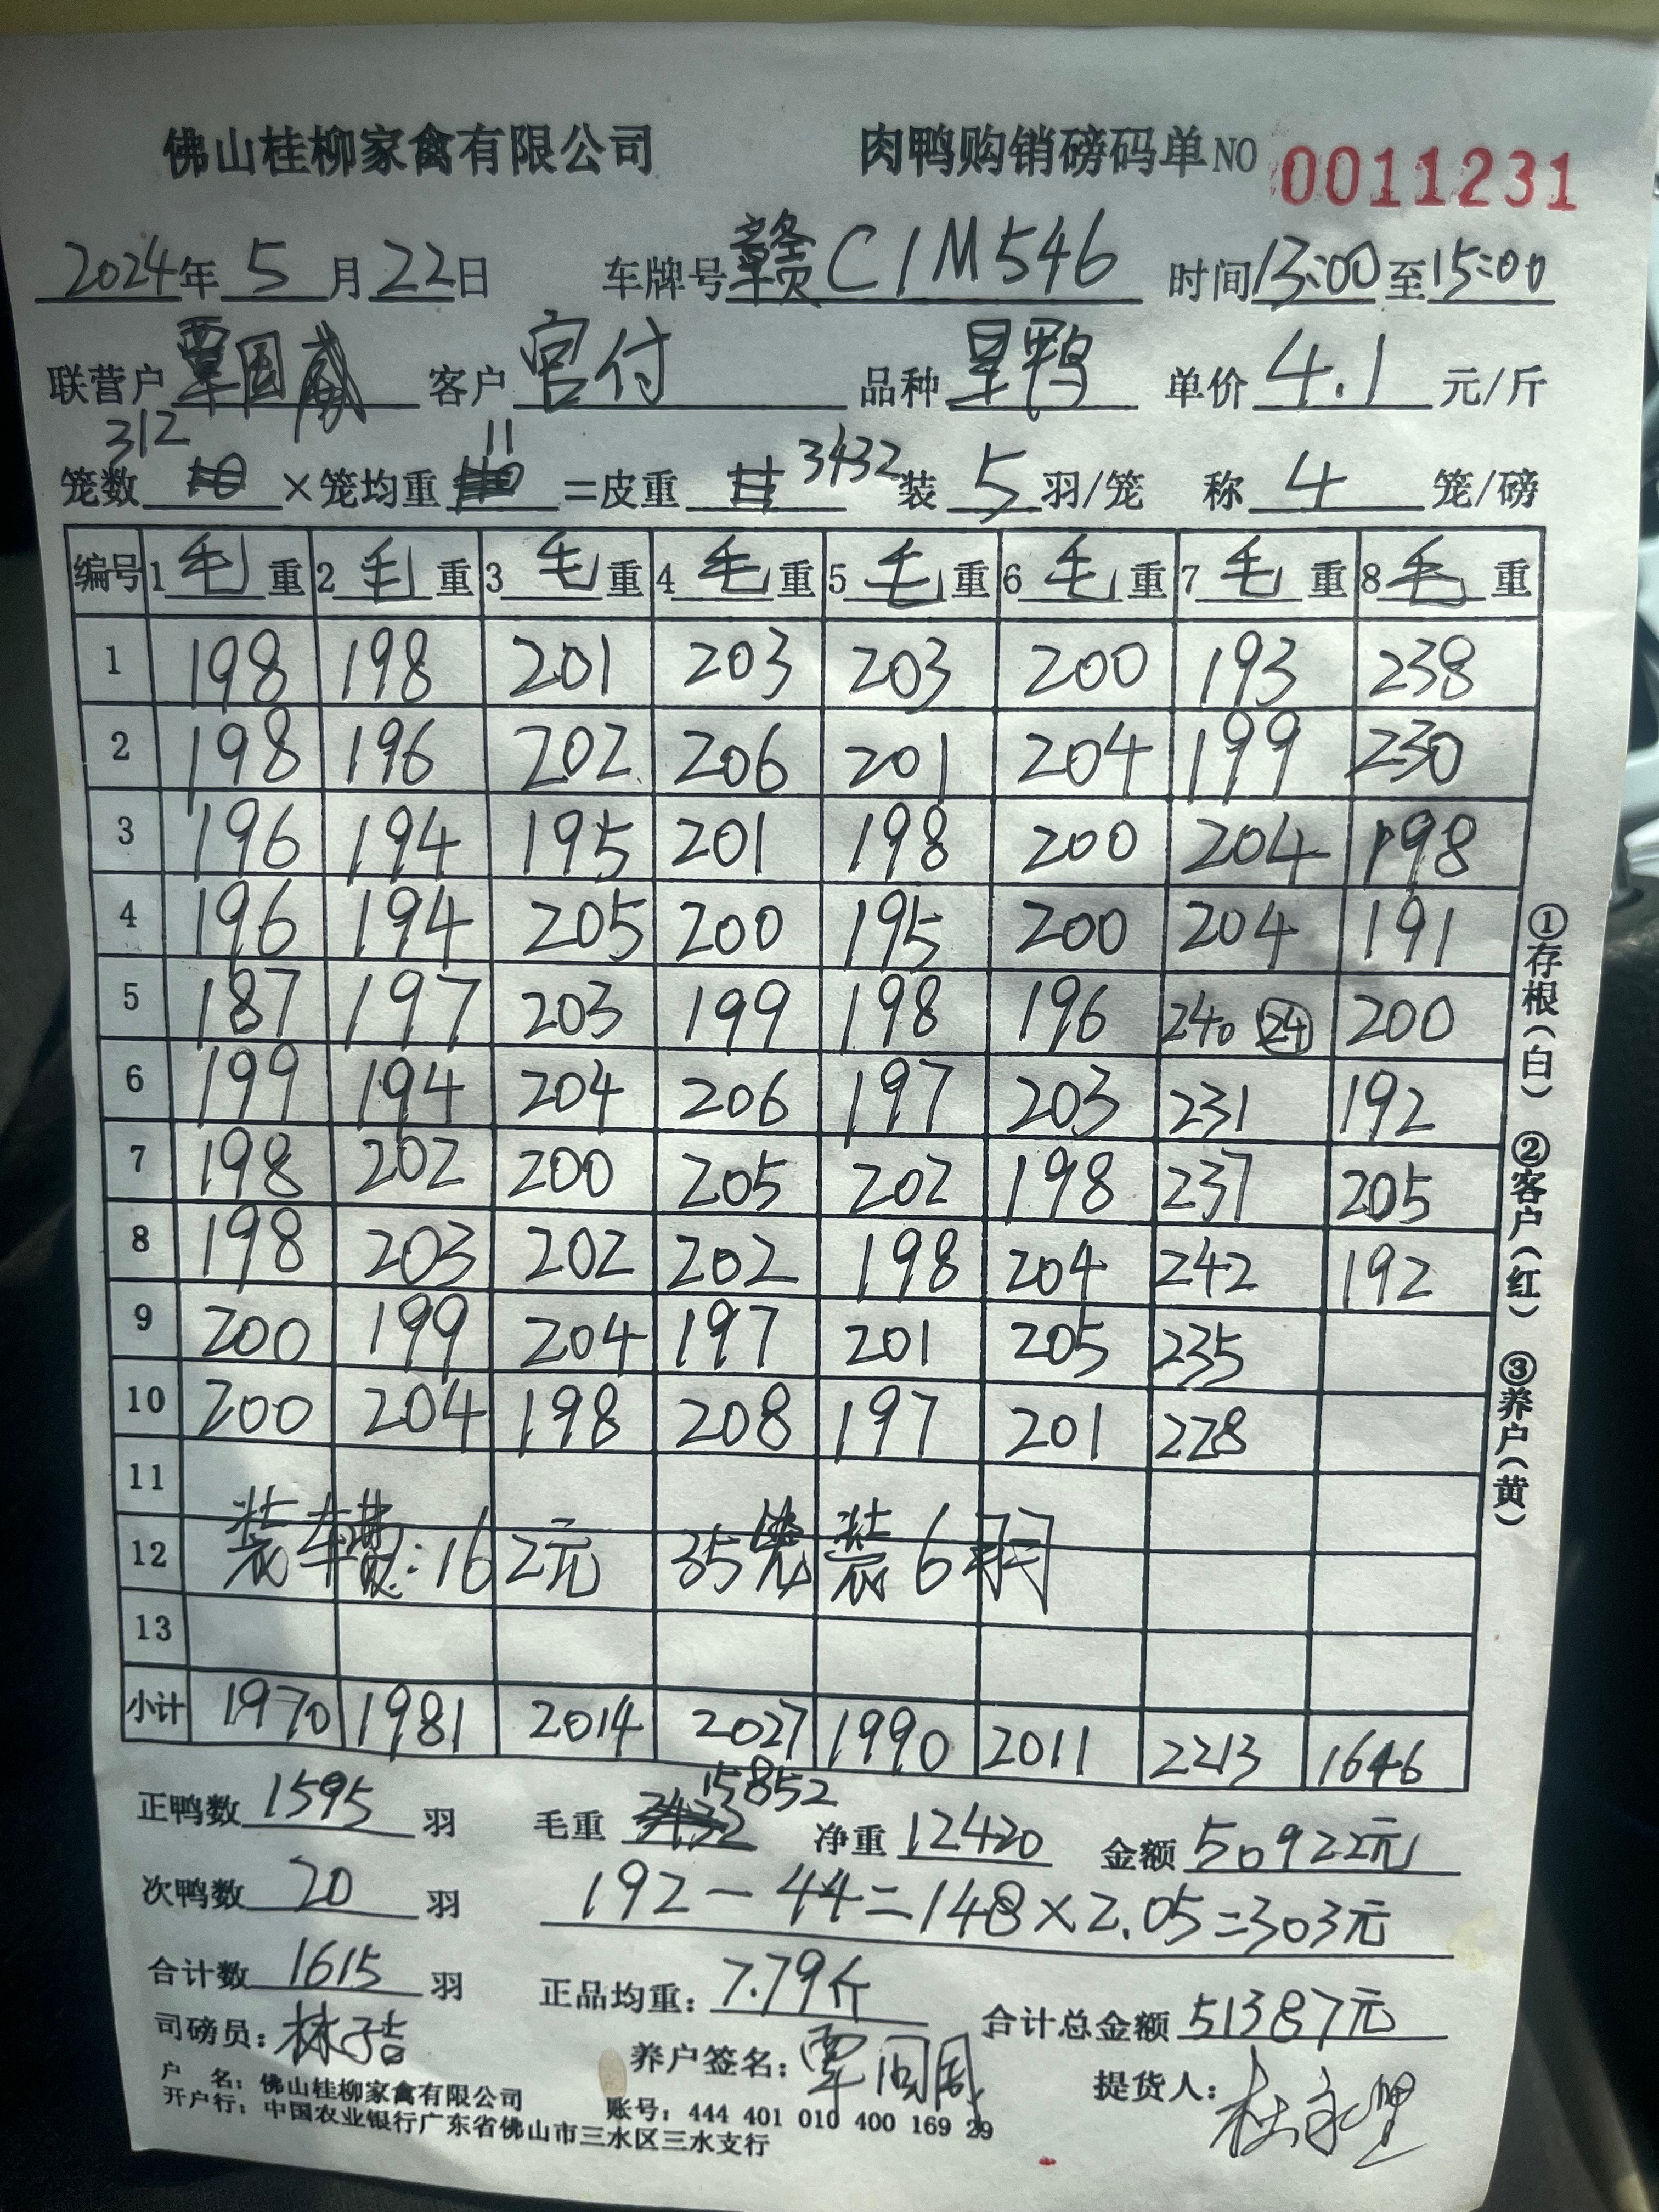 佛山桂柳家禽有限公司 肉鸭购销磅码单 NO 0011231
2024年 5 月 22 日 车牌号 赣C1M546 时间 13:00 至 15:00
联营户 覃国威 客户 宫付 品种 星鸭 单价 4.1 元/斤
312 11 3432
笼数 ×笼均重 =皮重 装 5 羽/笼 称 4 笼/磅
编号 1 毛 重 2 毛 重 3 毛 重 4 毛 重 5 毛 重 6 毛 重 7 毛 重 8 毛 重
1 198 198 201 203 203 200 193 238
2 198 196 202 206 201 204 199 230
3 196 194 195 201 198 200 204 198
4 196 194 205 200 195 200 204 191
5 187 197 203 199 198 196 240 24 200
6 199 194 204 206 197 203 231 192
7 198 202 200 205 202 198 237 205
8 198 203 202 202 198 204 242 192
9 200 199 204 197 201 205 235
10 200 204 198 208 197 201 228
11
12 装车费:162元 35笼装6羽
13
小计 1970 1981 2014 2027 1990 2011 2213 1646
正鸭数 1595 羽 毛重 15852 净重 12420 金额 50922元
次鸭数 20 羽 192-44=148×2.05=303元
合计数 1615 羽 正品均重: 7.79斤 合计总金额 51387元
司磅员: 林子吉 养户签名: 覃 提货人: 杜
户 名: 佛山桂柳家禽有限公司 账号: 444 401 010 400 169 29
开户行: 中国农业银行广东省佛山市三水区三水支行
①存根(白) ②客户(红) ③养户(黄)